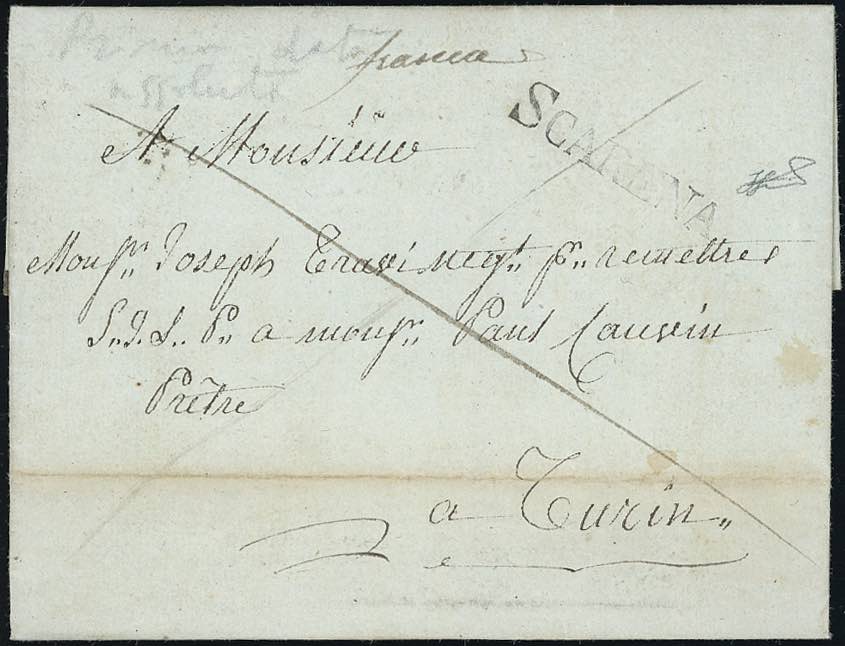 Prima data
assoluta
franca
SCARENA
A Monsieur
Monsr. Joseph Travi negt. pr. remettre
S. I. L. P. a monsr. Paul Cauvin
Prêtre
a Turin